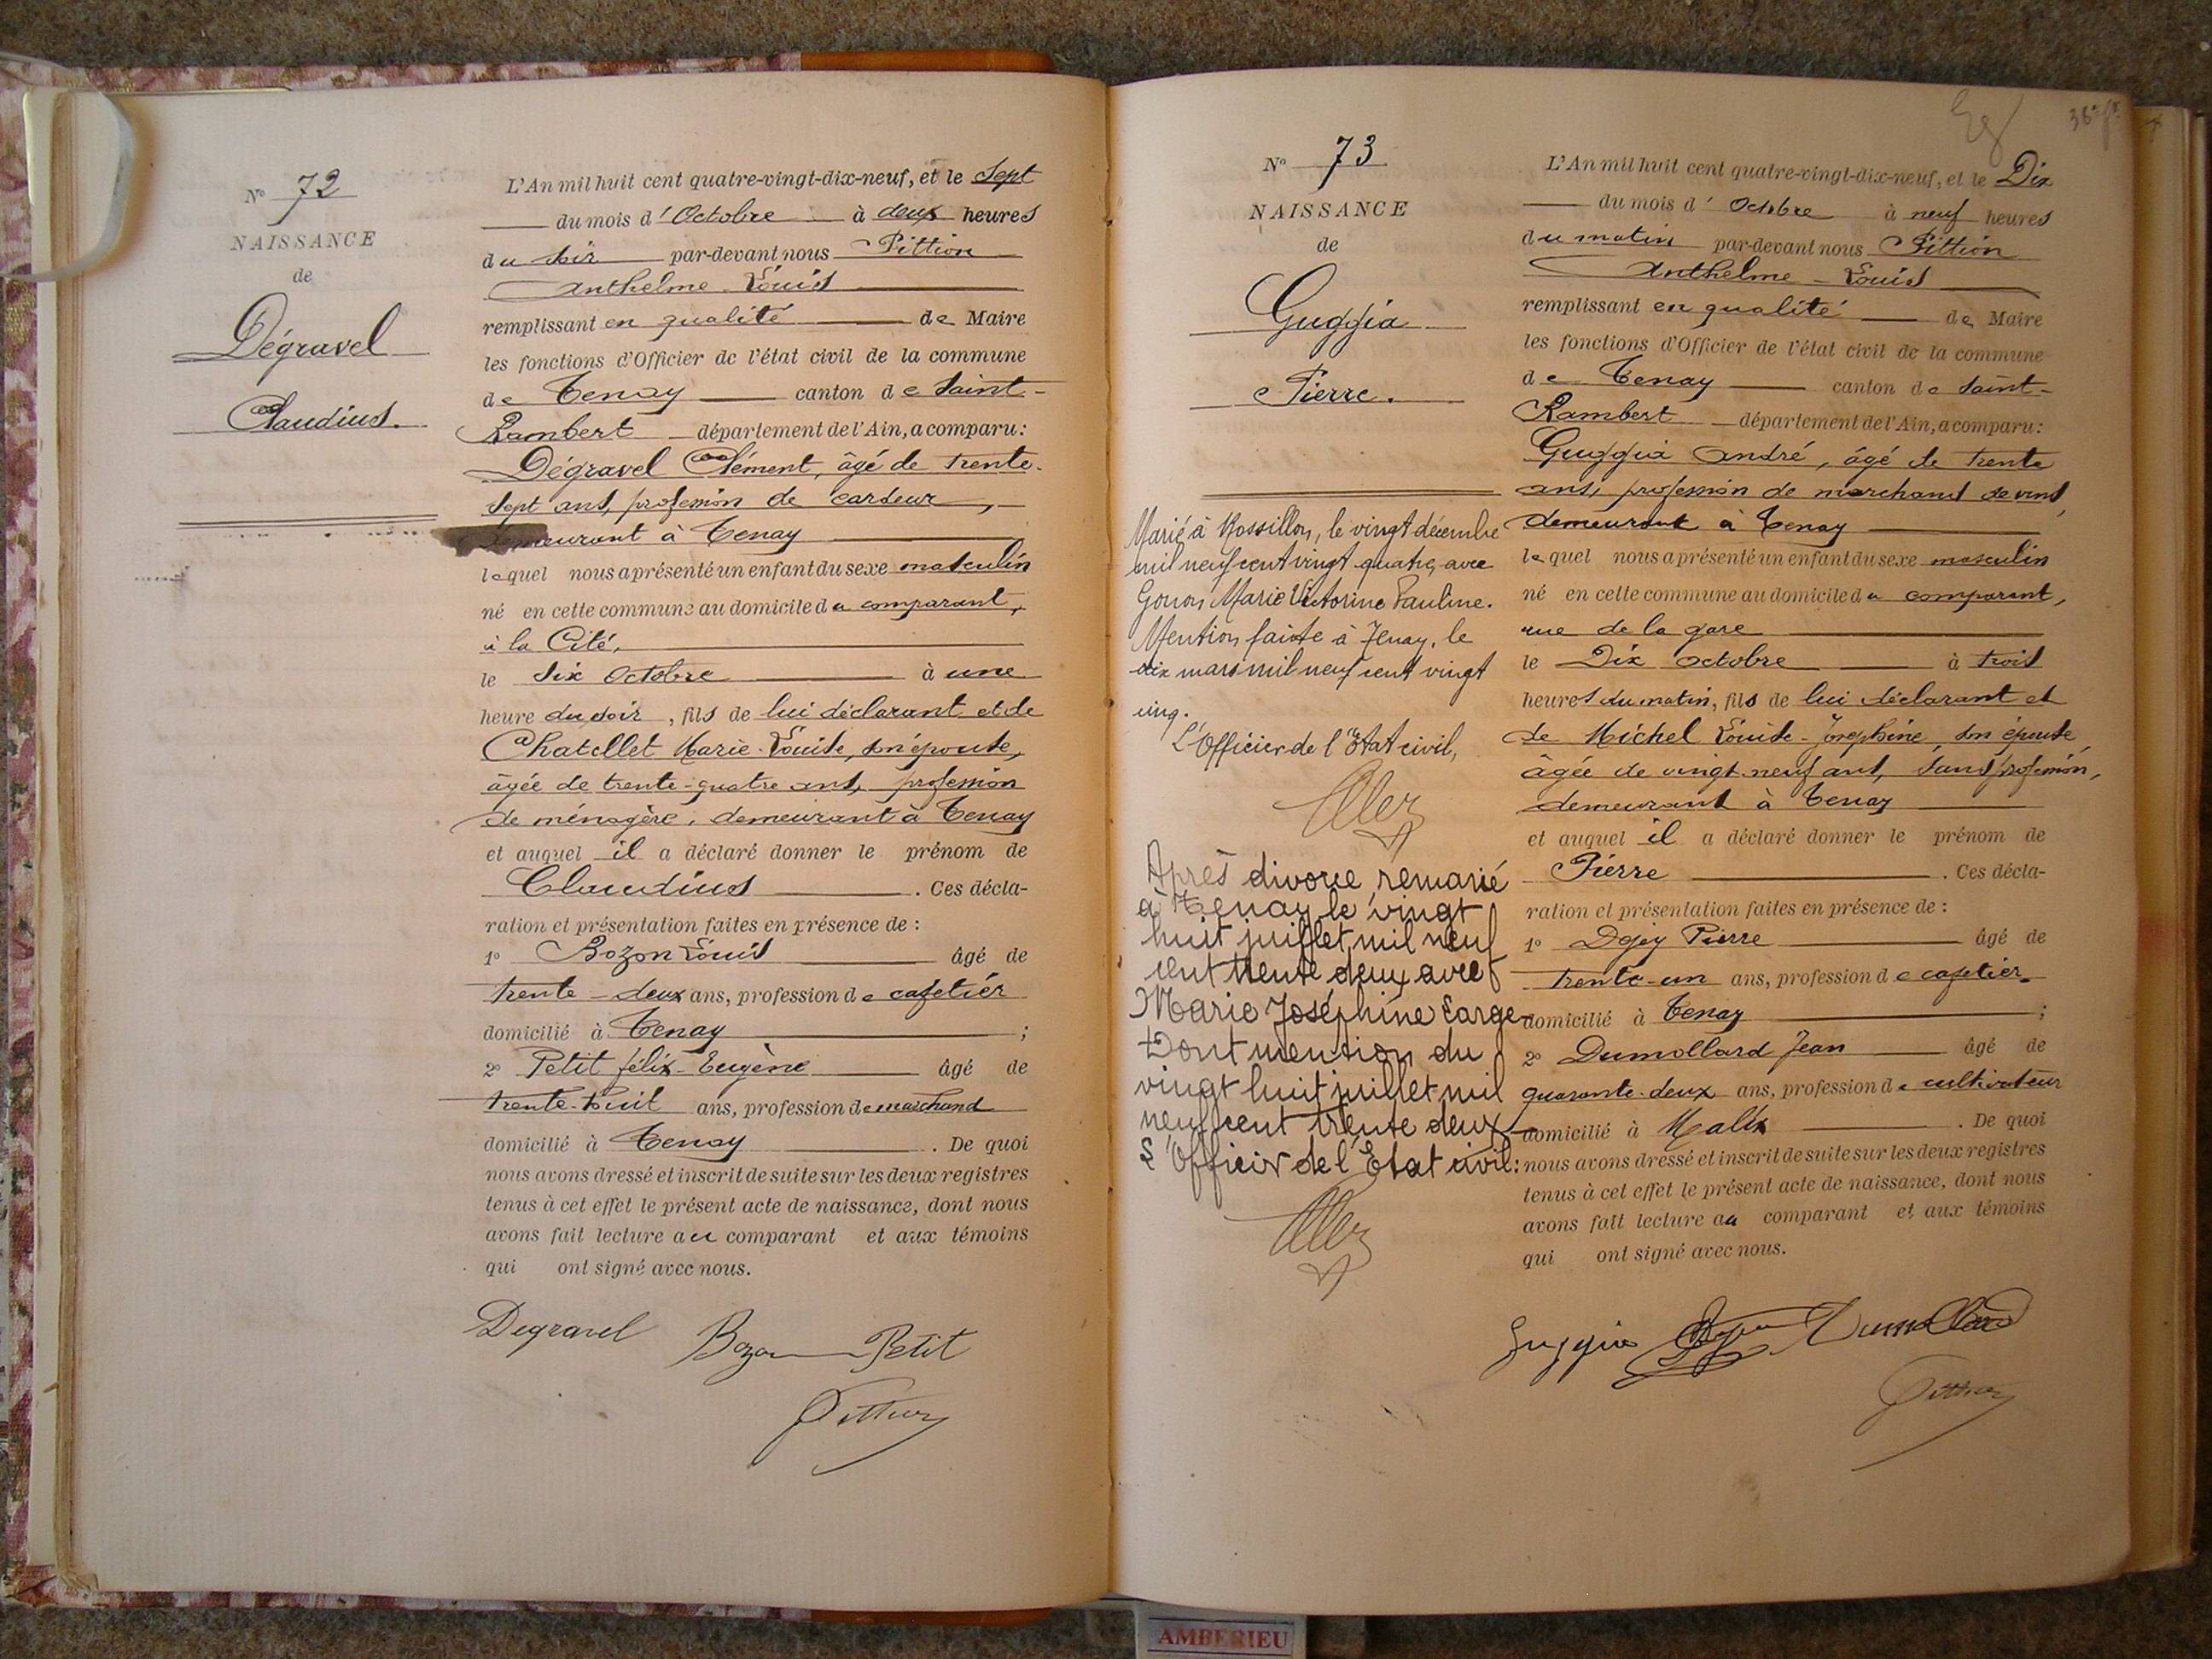 N° 72
NAISSANCE
de
Dégravel
Claudius.
L'An mil huit cent quatre-vingt-dix-neuf, et le Sept
du mois d'Octobre à deux heures
du soir par-devant nous Pittion
Anthelme-Louis
remplissant en qualité de Maire
les fonctions d'Officier de l'état civil de la commune
de Tenay canton de Saint-
Rambert département de l'Ain, a comparu:
Dégravel Clément, âgé de trente-
sept ans, profession de cardeur,
demeurant à Tenay
lequel nous a présenté un enfant du sexe masculin
né en cette commune au domicile du comparant,
à la Cité,
le Six Octobre à une
heure du soir, fils de lui déclarant et de
Chatellet Marie-Louise, son épouse,
âgée de trente-quatre ans, profession
de ménagère, demeurant à Tenay
et auquel il a déclaré donner le prénom de
Claudius. Ces décla-
ration et présentation faites en présence de :
1° Bozon Louis âgé de
trente-deux ans, profession de cafetier
domicilié à Tenay ;
2° Petit félix-Eugène âgé de
trente-huit ans, profession de marchand
domicilié à Tenay. De quoi
nous avons dressé et inscrit de suite sur les deux registres
tenus à cet effet le présent acte de naissance, dont nous
avons fait lecture au comparant et aux témoins
qui ont signé avec nous.
Degravel Bozon Petit
Pittion
N° 73
NAISSANCE
de
Guggia
Pierre.
Marié à Rossillon, le vingt décembre
mil neuf cent vingt quatre, avec
Gonon Marie Victorine Pauline.
Mention faite à Tenay, le
dix mars mil neuf cent vingt
cinq.
L'Officier de l'Etat civil,
Après divorce remarié
à Tenay le vingt
huit juillet mil neuf
cent trente deux avec
Marie Joséphine Large
Dont mention du
vingt huit juillet mil
neuf cent trente deux
L'Officier de l'Etat civil:
L'An mil huit cent quatre-vingt-dix-neuf, et le Dix
du mois d'Octobre à neuf heures
du matin par-devant nous Pittion
Anthelme-Louis
remplissant en qualité de Maire
les fonctions d'Officier de l'état civil de la commune
de Tenay canton de Saint-
Rambert département de l'Ain, a comparu:
Guggia André, âgé de trente
ans, profession de marchand de vins,
demeurant à Tenay
lequel nous a présenté un enfant du sexe masculin
né en cette commune au domicile du comparant,
rue de la gare
le Dix octobre à trois
heures du matin, fils de lui déclarant et
de Michel Louise-Joséphine, son épouse,
âgée de vingt-neuf ans, sans profession,
demeurant à Tenay
et auquel il a déclaré donner le prénom de
Pierre. Ces décla-
ration et présentation faites en présence de :
1° Pierre âgé de
trente-un ans, profession de cafetier
domicilié à Tenay ;
2° Dumollard Jean âgé de
quarante-deux ans, profession de cultivateur
domicilié à Malix. De quoi
nous avons dressé et inscrit de suite sur les deux registres
tenus à cet effet le présent acte de naissance, dont nous
avons fait lecture au comparant et aux témoins
qui ont signé avec nous.
Guggia Dumollard
Pittion
AMBERIEU